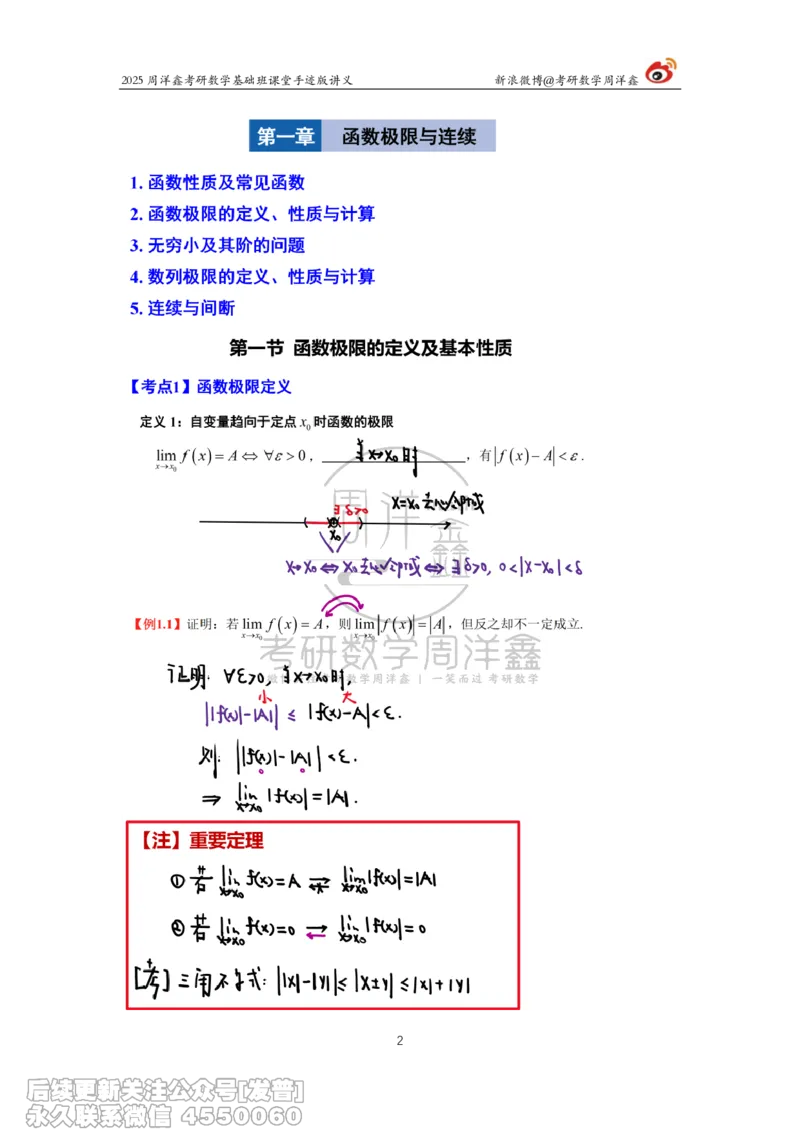 2025 周洋鑫考研数学基础班课堂手迹版讲义 新浪微博@考研数学周洋鑫
第一章 函数极限与连续
1. 函数性质及常见函数
2. 函数极限的定义、性质与计算
3. 无穷小及其阶的问题
4. 数列极限的定义、性质与计算
5. 连续与间断
第一节 函数极限的定义及基本性质
【考点1】函数极限定义
定义 1：自变量趋向于定点 x₀ 时函数的极限
lim_{x→x₀} f(x) = A ⇔ ∀ε > 0，当x→x₀时，有|f(x) − A| < ε.
x=x₀去心邻域
∃δ>0
x₀
x→x₀ ⇔ x₀去心邻域 ⇔ ∃δ>0, 0<|x-x₀|<δ
【例1.1】证明：若 lim_{x→x₀} f(x) = A，则 lim_{x→x₀} |f(x)| = |A|，但反之却不一定成立.
周洋鑫
考研数学周洋鑫
数学周洋鑫 | 一笑而过 考研数学
证明: ∀ε>0, 当x→x₀时,
小 大
||f(x)|-|A|| ≤ |f(x)-A|<ε.
则: ||f(x)|-|A||<ε.
⇒ lim_{x→x₀} |f(x)|=|A|.
【注】重要定理
① 若 lim_{x→x₀} f(x)=A ⇄ lim_{x→x₀} |f(x)|=|A|
② 若 lim_{x→x₀} f(x)=0 ⇄ lim_{x→x₀} |f(x)|=0
[考] 三角不等式: ||x|-|y||≤|x±y|≤|x|+|y|
2
后续更新关注公众号[发普]
永久联系微信 4550060